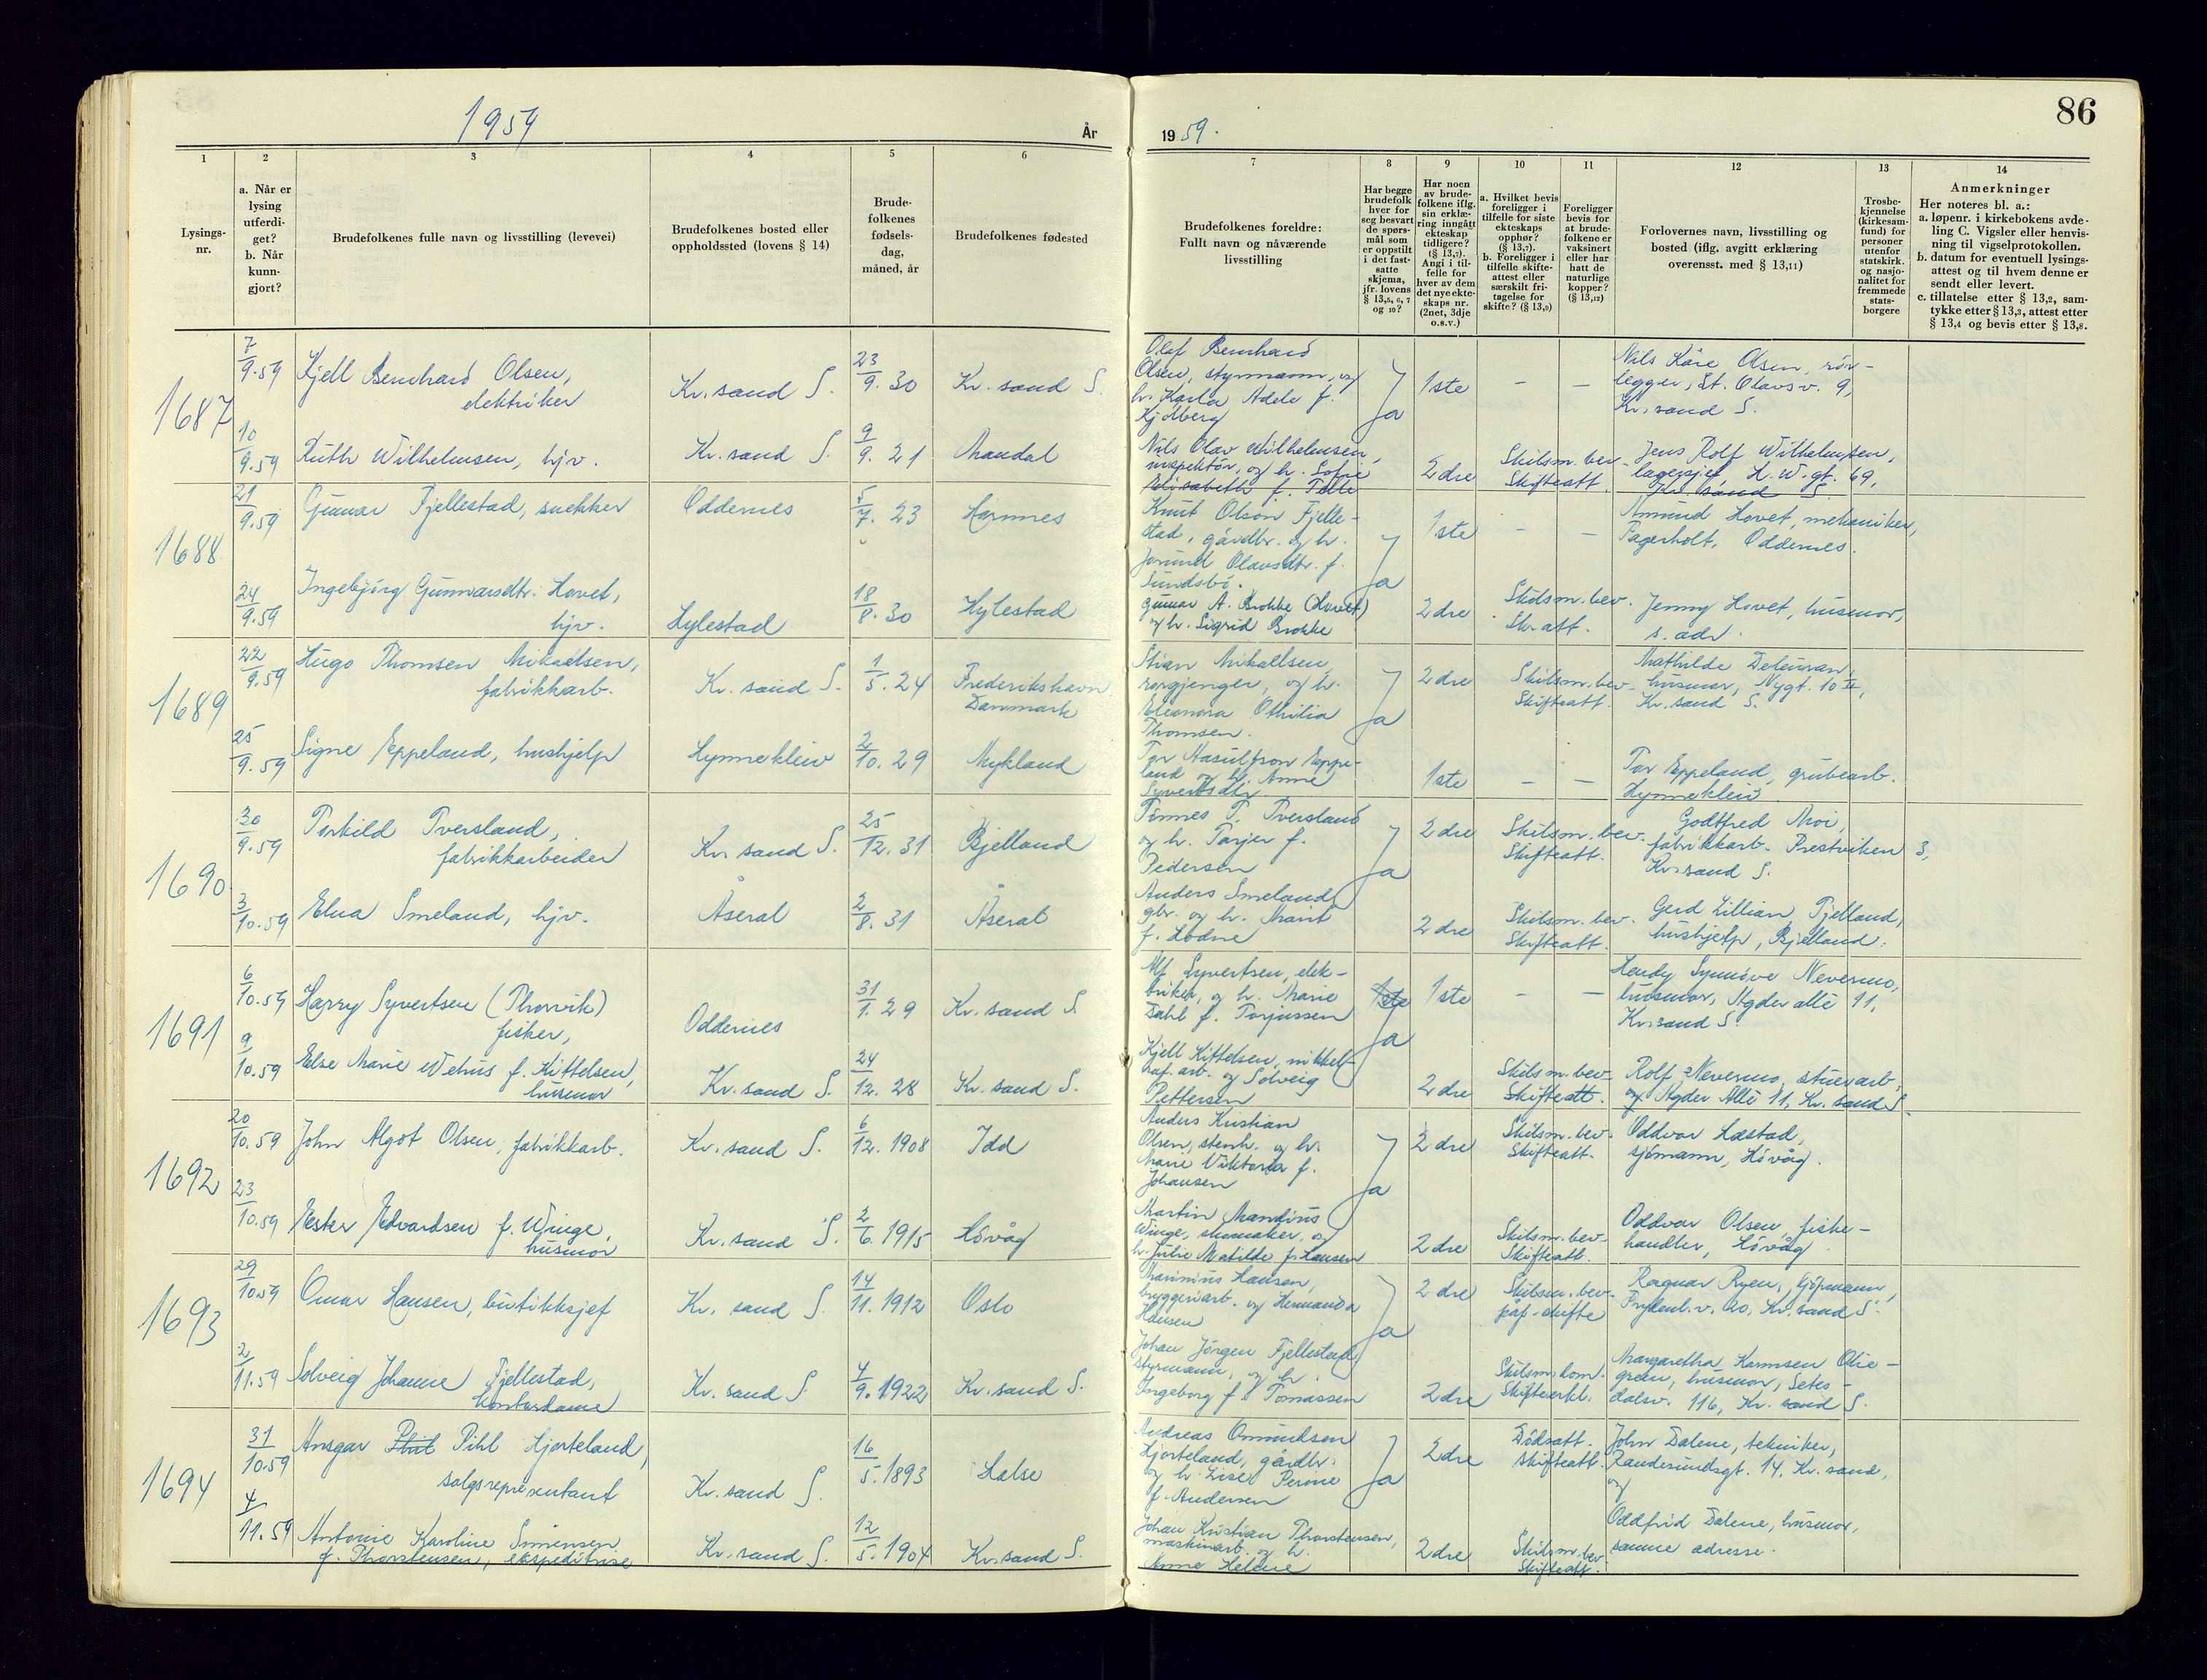 86
1959
År
1959.
1
2
3
4
5
6
7
8
9
10
11
12
13
14
Lysings-
nr.
a. Når er
lysing
utferdi-
get?
b. Når
kunn-
gjort?
Brudefolkenes fulle navn og livsstilling (levevei)
Brudefolkenes bosted eller
oppholdssted (lovens § 14)
Brude-
folkenes
fødsels-
dag,
måned, år
Brudefolkenes fødested
Brudefolkenes foreldre:
Fullt navn og nåværende
livsstilling
Har begge
brudefolk
hver for
seg besvart
de spørs-
mål som
er oppstilt
i det fast-
satte
skjema,
jfr. lovens
§ 13,5, 6, 7
og 10?
Har noen
av brude-
folkene iflg.
sin erklæ-
ring inngått
ekteskap
tidligere?
(§ 13,7).
Angi i til-
felle for
hver av dem
det nye ekte-
skaps nr.
(2net, 3dje
o.s.v.)
a. Hvilket bevis
foreligger i
tilfelle for siste
ekteskaps
opphør?
(§ 13,7).
b. Foreligger i
tilfelle skifte-
attest eller
særskilt fri-
tagelse for
skifte? (§ 13,9)
Foreligger
bevis for
at brude-
folkene er
vaksinert
eller har
hatt de
naturlige
kopper?
(§ 13,12)
Forlovernes navn, livsstilling og
bosted (iflg. avgitt erklæring
overensst. med § 13,11)
Trosbe-
kjennelse
(kirkesam-
fund) for
personer
utenfor
statskirk.
og nasjo-
nalitet for
fremmede
stats-
borgere
Anmerkninger
Her noteres bl. a.:
a. løpenr. i kirkebokens avde-
ling C. Vigsler eller henvis-
ning til vigselprotokollen.
b. datum for eventuell lysings-
attest og til hvem denne er
sendt eller levert.
c. tillatelse etter § 13,2, sam-
tykke etter § 13,3, attest etter
§ 13,4 og bevis etter § 13,8.
1687
7/9.59
Kjell Bernhard Olsen,
elektriker
Kr. sand S.
23/9. 30
Kr. sand S.
Olaf Bernhard
Olsen, styrmann, og
h. Karla Adele f.
Kjölberg
Ja
1ste
-
-
Nils Kåre Olsen, rör-
legger, St. Olavsv. 9,
Kr. sand S.
10/9.59
Ruth Wilhelmsen, hjv.
Kr. sand S.
9/9. 21
Mandal
Nils Olav Wilhelmsen,
inspektör, og h. Sofie
Elisabeth f. Telle
2dre
Skilsm. bev.
Skifteatt.
Jens Rolf Wilhelmsen,
lagersjef, H.W.gt. 69,
Kr. sand S.
1688
21/9.59
Gunnar Fjellestad, snekker
Oddernes
5/7. 23
Hornnes
Knut Olson Fjelle-
stad, gårdbr. og h.
Jorund Olavsdtr. f.
Sundsbö.
Ja
1ste
-
-
Amund Hovet, mekaniker,
Fagerholt, Oddernes.
24/9.59
Ingebjörg Gunnarsdtr. Hovet,
hjv.
Hylestad
18/8. 30
Hylestad
Gunnar A. Brokke (Hovet)
og h. Sigrid Brokke
2dre
Skilsm. bev.
Sk. att.
Jenny Hovet, husmor,
s. adr.
1689
22/9.59
Hugo Thomsen Mikaelsen,
fabrikkarb.
Kr. sand S.
1/5. 24
Frederikshavn
Danmark
Stian Mikallsen,
rorgjenger, og h.
Eleonora Othilia
Thomsen.
Ja
2dre
Skilsm. bev.
Skifteatt.
Mathilde
husmor, Nygt. 10 II,
Kr. sand S.
25/9.59
Signe Eppeland, hushjelp
Hynnekleiv
2/10. 29
Mykland
Tor Aasulfson Eppe-
land og h. Anne
Syvertsdtr.
1ste
-
-
Tor Eppeland, grubearb.
Hynnekleiv
1690
30/9.59
Torkild Tversland,
fabrikkarbeider
Kr. sand S.
25/12. 31
Bjelland
Tönnes T. Tversland
og h. Torjer f.
Pedersen
Ja
2dre
Skilsm. bev.
Skifteatt.
Godtfred Moi,
fabrikkarb. Prestviken 3,
Kr. sand S.
3/10.59
Elna Smeland, hjv.
Åseral
2/8. 31
Åseral
Anders Smeland
gbr. og h. Marit
f. Lodne
2dre
Skilsm. bev.
Skifteatt.
Gerd Lillian Fjelland,
hushjelp, Bjelland.
1691
6/10.59
Harry Syvertsen (Thorvik)
fisker,
Oddernes
31/1. 29
Kr. sand S
Alf Syvertsen, elek-
triker, og h. Marie
Dahl f. Torjussen
1ste
Ja
1ste
-
-
Hendy Synnöve Nevermo,
husmor, Agder allè 11,
Kr. sand S.
9/10.59
Else Marie Wehus f. Kittelsen,
husmor
Kr. sand S.
24/12. 28
Kr. sand S.
Kjell Kittelsen, nikkel-
raf. arb. og Solveig
Pettersen
2dre
Skilsm. bev.
Skifteatt.
Rolf Nevermo, stuerarb.
og Agder Allè 11, Kr. sand S.
1692
20/10.59
John Algot Olsen, fabrikkarb.
Kr. sand S.
6/12. 1908
Idd
Anders Kristian
Olsen, stenh. og h.
Marie Viktoria f.
Johansen
Ja
2dre
Skilsm. bev.
Skifteatt.
Oddvar Hæstad,
sjömann, Hövåg.
23/10.59
Ester Edvardsen f. Winge,
husmor
Kr. sand S.
2/6. 1915
Hövåg
Martin Mandius
Winge, skomaker, og
h. Julie Matilde f. Hansen
2dre
Skilsm. bev.
Skifteatt.
Oddvar Olsen, fiske-
handler, Hövåg.
1693
29/10.59
Omar Hansen, butikksjef
Kr. sand S.
14/11. 1912
Oslo
Marinius Hansen,
bryggeriarb. og Hermanda
Hansen
Ja
2dre
Skilsm. bev.
påf. skifte
Ragnar Ryen, sjömann,
Frydenl.v. 20, Kr. sand S.
2/11.59
Solveig Johanne Fjellestad,
kontordame
Kr. sand S.
4/9. 1922
Kr. sand S.
Johan Jörgen Fjellestad,
styrmann, og h.
Ingeborg f. Tomassen
2dre
Skilsm. dom.
Skifteerkl.
Margaretha Karmsen Olie-
green, husmor, Setes-
dalsv. 116, Kr. sand S.
1694
31/10.59
Ansgar Phil Pihl Hjorteland,
salgsrepresentant
Kr. sand S.
16/5. 1893
Halse
Andreas Omundsen
Hjorteland, gårdbr.
og h. Lisel Perine
f. Andersen
Ja
2dre
Dödsatt.
Skifteatt.
John Dalene, tekniker,
Randesundsgt. 14, Kr. sand,
og
4/11.59
Antonie Karoline Simonsen
f. Thorstensen, ekspeditrise
Kr. sand S.
12/5. 1904
Kr. sand S.
Johan Kristian Thorstensen,
maskinarb. og h.
Anna Helene
2dre
Skilsm. bev.
Skifteatt.
Oddfrid Dalene, husmor,
samme adresse.